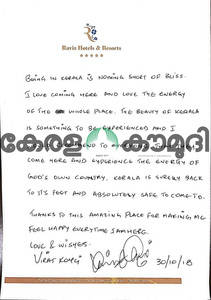 Ravis Hotels & Resorts
BEING IN KERALA IS NOTHING SHORT OF BLISS.
I LOVE COMING HERE AND LOVE THE ENERGY
OF THE WHOLE PLACE. THE BEAUTY OF KERALA
IS SOMETHING TO BE EXPERIENCED AND I
കേരള കൗമുദി
COME HERE AND EXPERIENCE THE ENERGY OF
GOD'S OWN COUNTRY. KERALA IS SURELY BACK
TO IT'S FEET AND ABSOLUTELY SAFE TO COME TO.
THANKS TO THIS AMAZING PLACE FOR MAKING ME
FEEL HAPPY EVERYTIME I AM HERE.
LOVE & WISHES.
VIRAT KOHLI
30/10/18